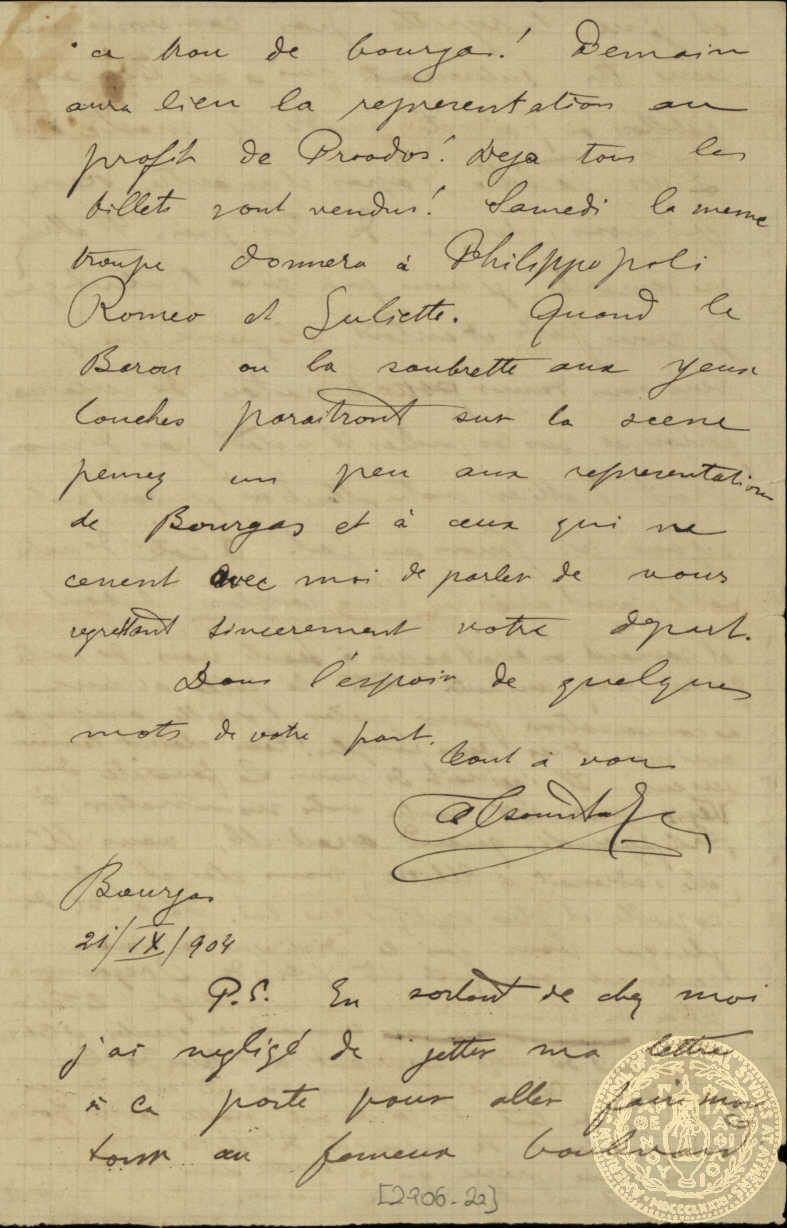 ce trou de bourgas! Demain
aura lieu la representation au
profit de Proodos! Deja tous les
billets sont vendus! Samedi la meme
troupe donnera à Philippopoli
Romeo et Juliette. Quand le
Baron ou la soubrette aux yeux
louches paraitront sur la scene
pensez un peu aux representations
de Bourgas et à ceux qui ne
cessent avec moi de parler de vous
regrettant sincerement votre depart.
Dans l'espoir de quelques
mots de votre part.
tout à vous
Bourgas
21/IX/904
P.S. En sortant de chez moi
j'ai negligé de jetter ma lettre
à la poste pour aller faire mon
tour au fameux boulevard
[2906-2a]